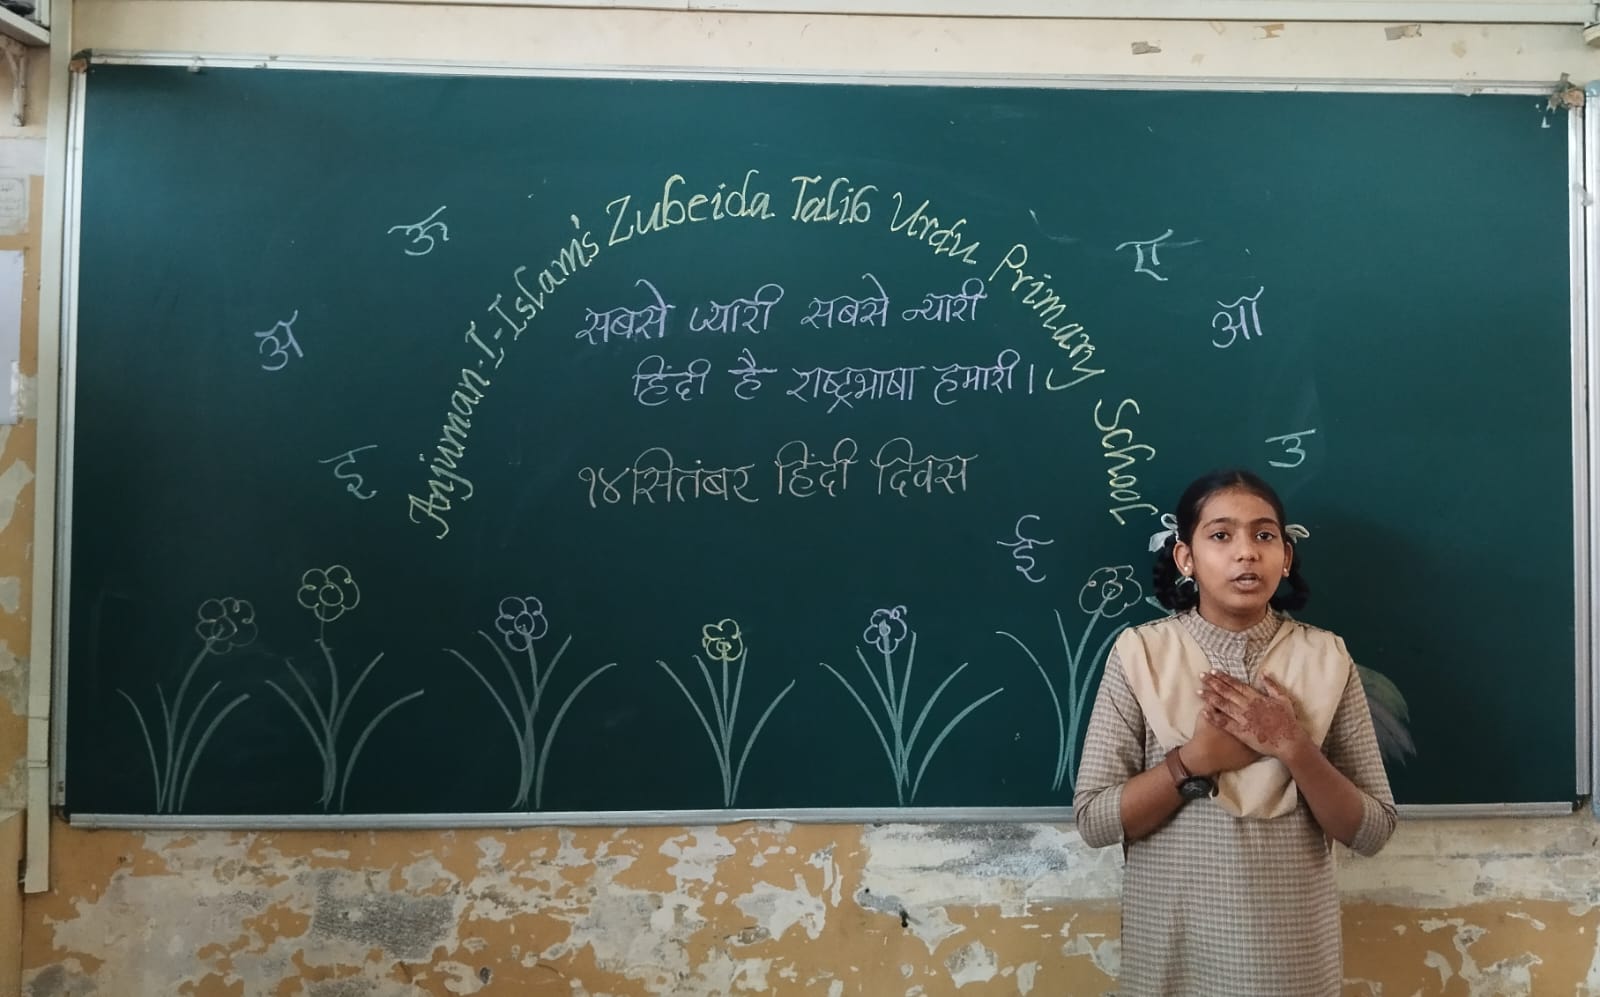 Anjuman-I-Islam's Zubeida Talib Urdu Primary School
ऊ
ए
अ
ऑ
सबसे प्यारी सबसे न्यारी
हिंदी है राष्ट्रभाषा हमारी।
इ
उ
१४ सितंबर हिंदी दिवस
ई